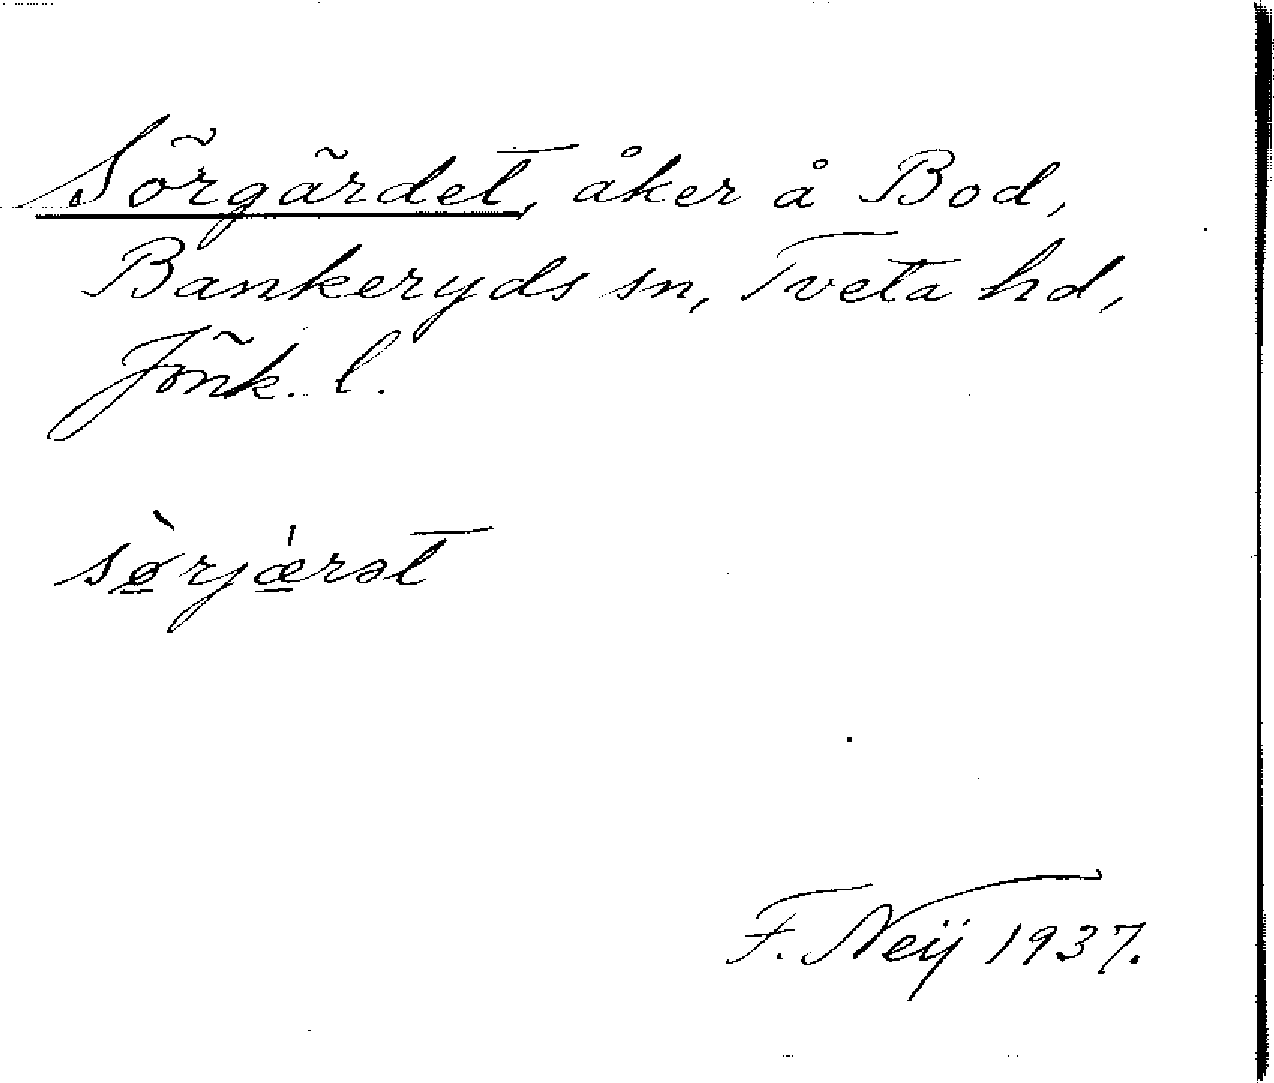 Sörgärdet, åker å Bod,
Bankeryds sn, Tveta hd,
Jönk. l.
sø̀rjæ̍rət
F. Neij 1937.